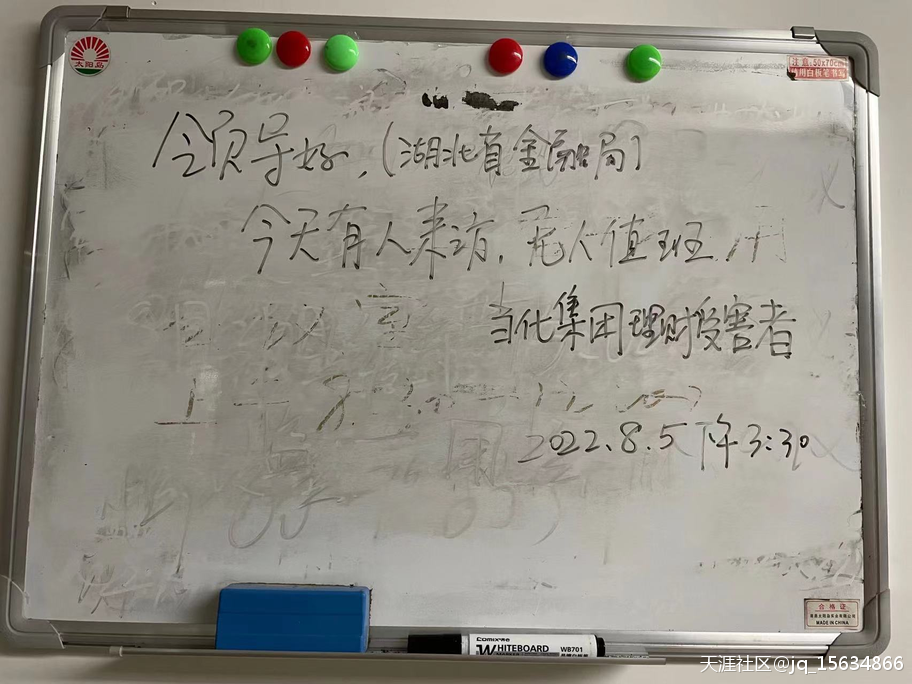 太阳岛
注意:50x70cm
领导好,(湖北省金融局)
今天有人来访,无人值班
当代集团理财受害者
2022.8.5 下午3:30
合格证
MADE IN CHINA
Comix齐心
WHITEBOARD WB701
天涯社区@jq_15634866